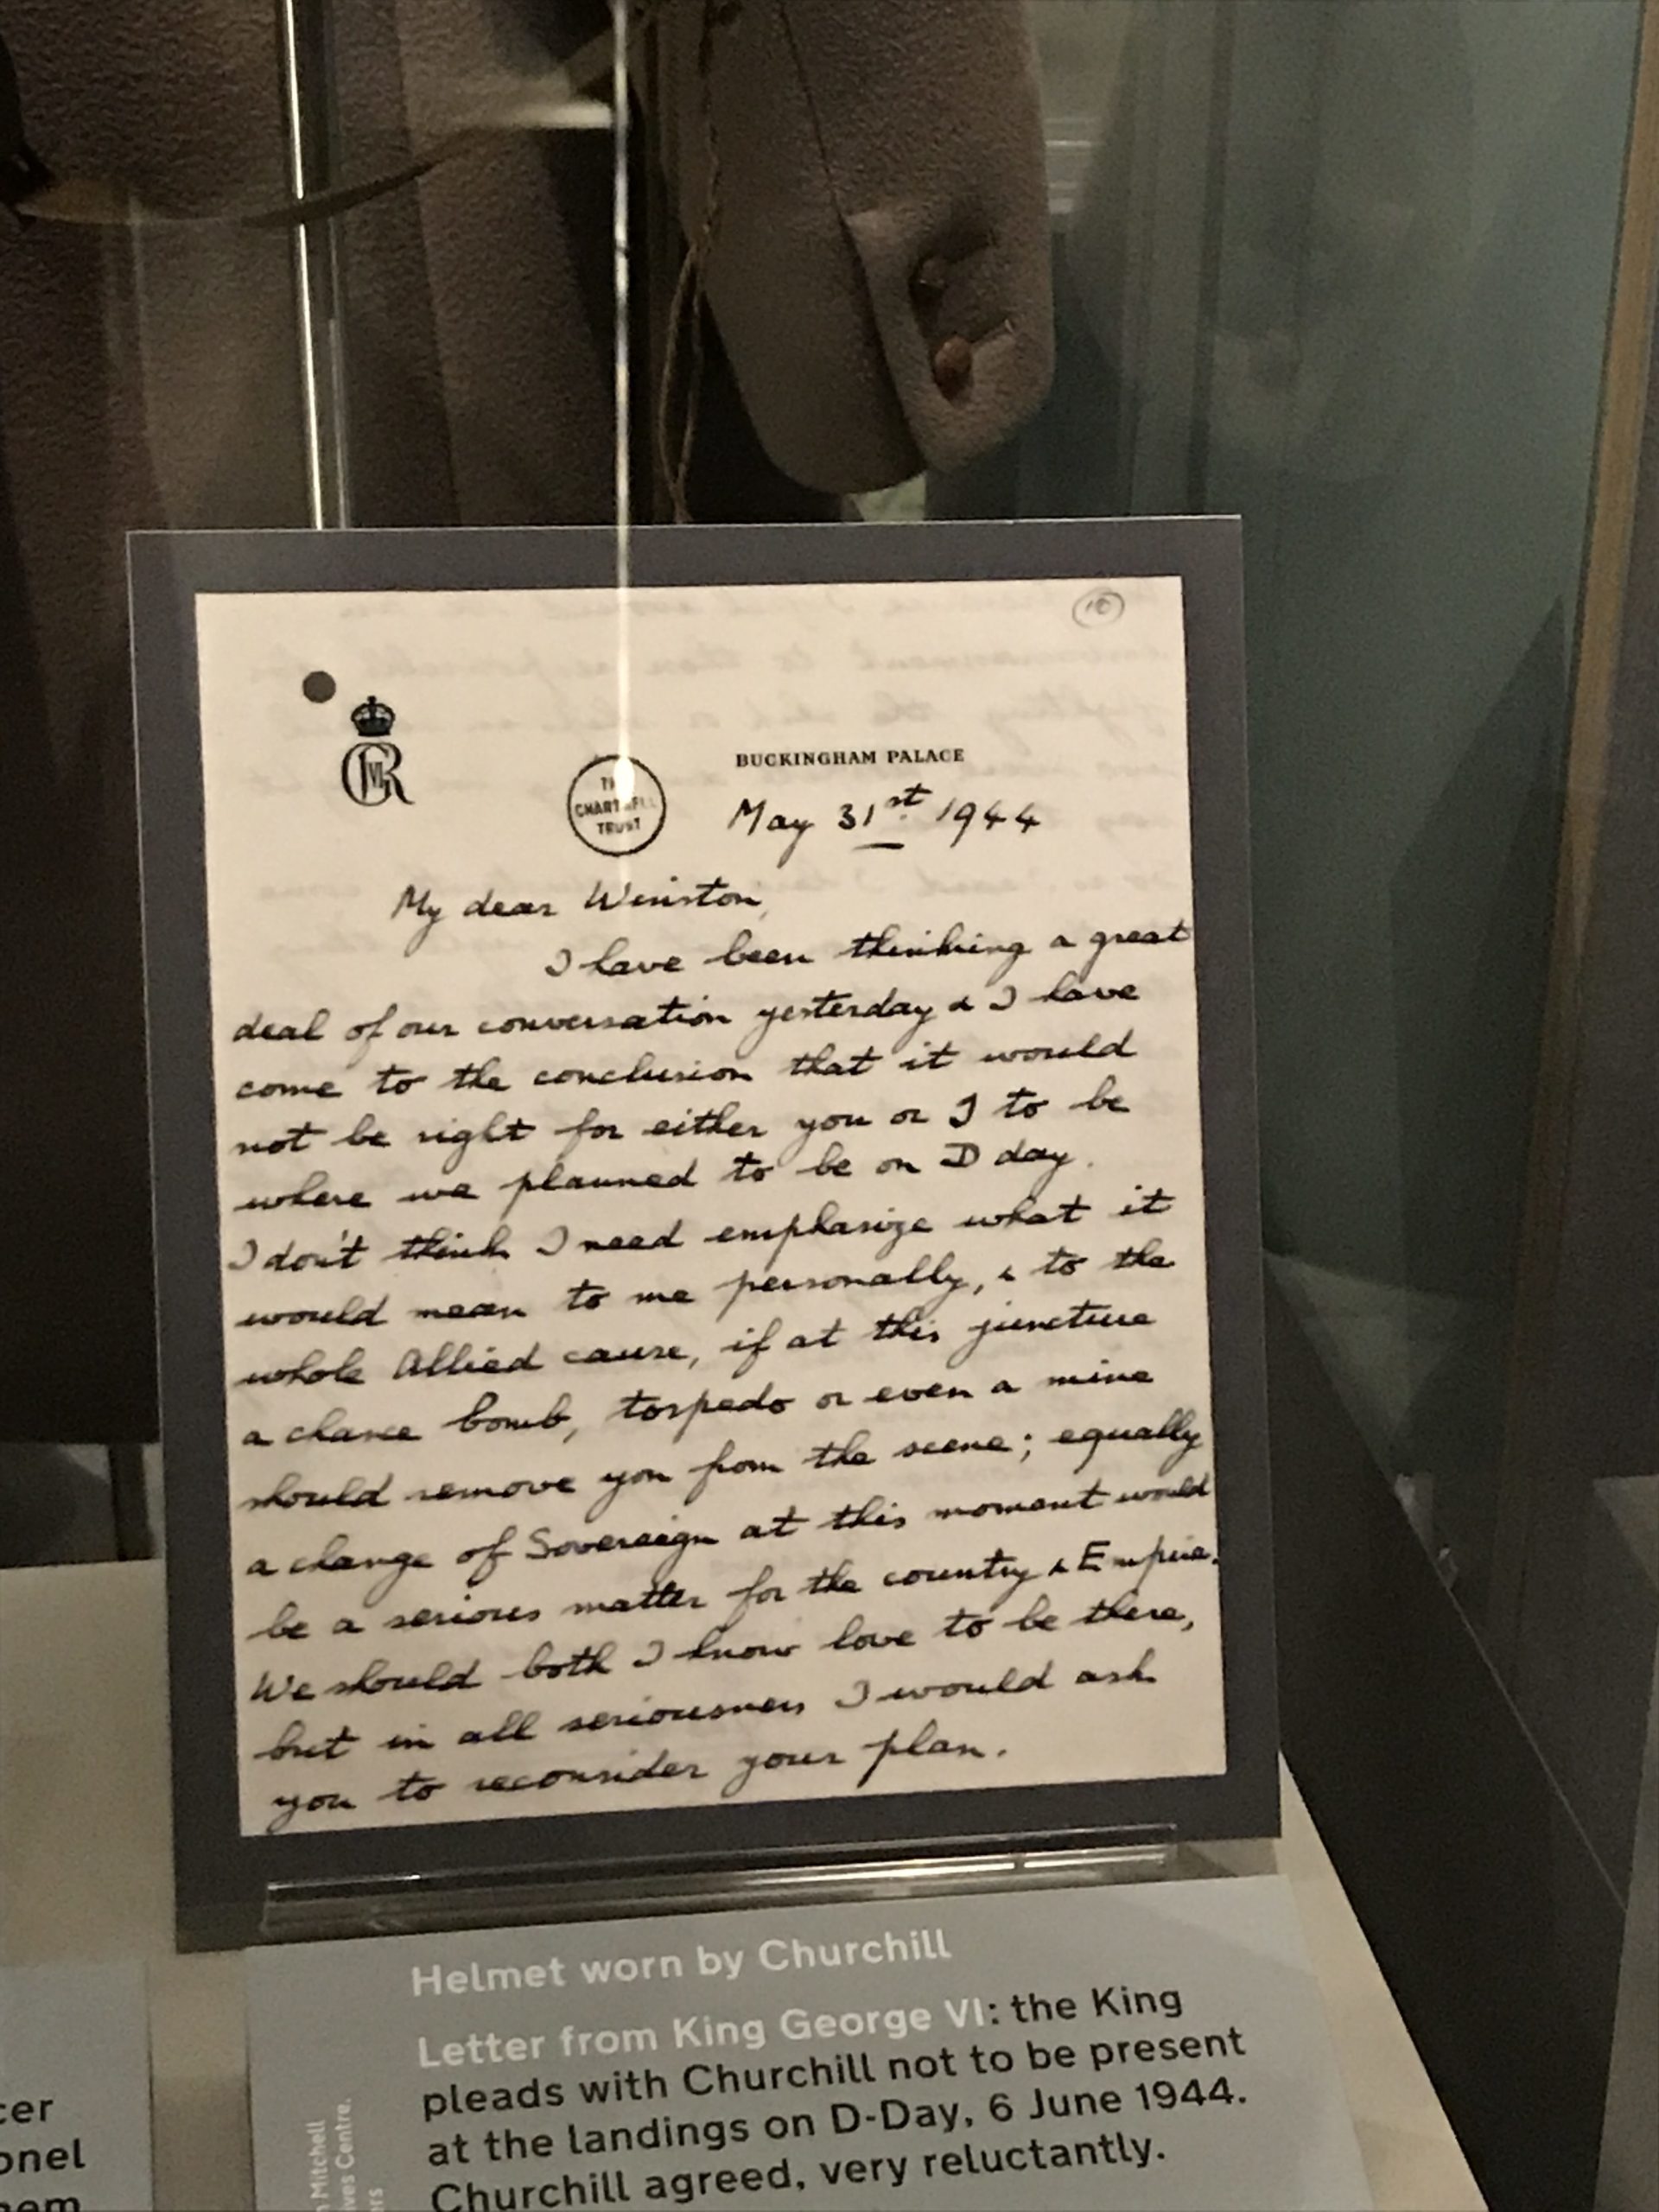 10
GVIR
BUCKINGHAM PALACE
THE
CHARTWELL
TRUST
May 31st 1944
My dear Winston,
I have been thinking a great
deal of our conversation yesterday & I have
come to the conclusion that it would
not be right for either you or I to be
where we planned to be on D day.
I don't think I need emphasize what it
would mean to me personally, & to the
whole Allied cause, if at this juncture
a chance bomb, torpedo or even a mine
should remove you from the scene; equally
a change of Sovereign at this moment would
be a serious matter for the country & Empire.
We should both I know love to be there,
but in all seriousness I would ask
you to reconsider your plan.
Helmet worn by Churchill
Letter from King George VI: the King
pleads with Churchill not to be present
at the landings on D-Day, 6 June 1944.
Churchill agreed, very reluctantly.
Mitchell
ives Centre.
ers
cer
onel
hem